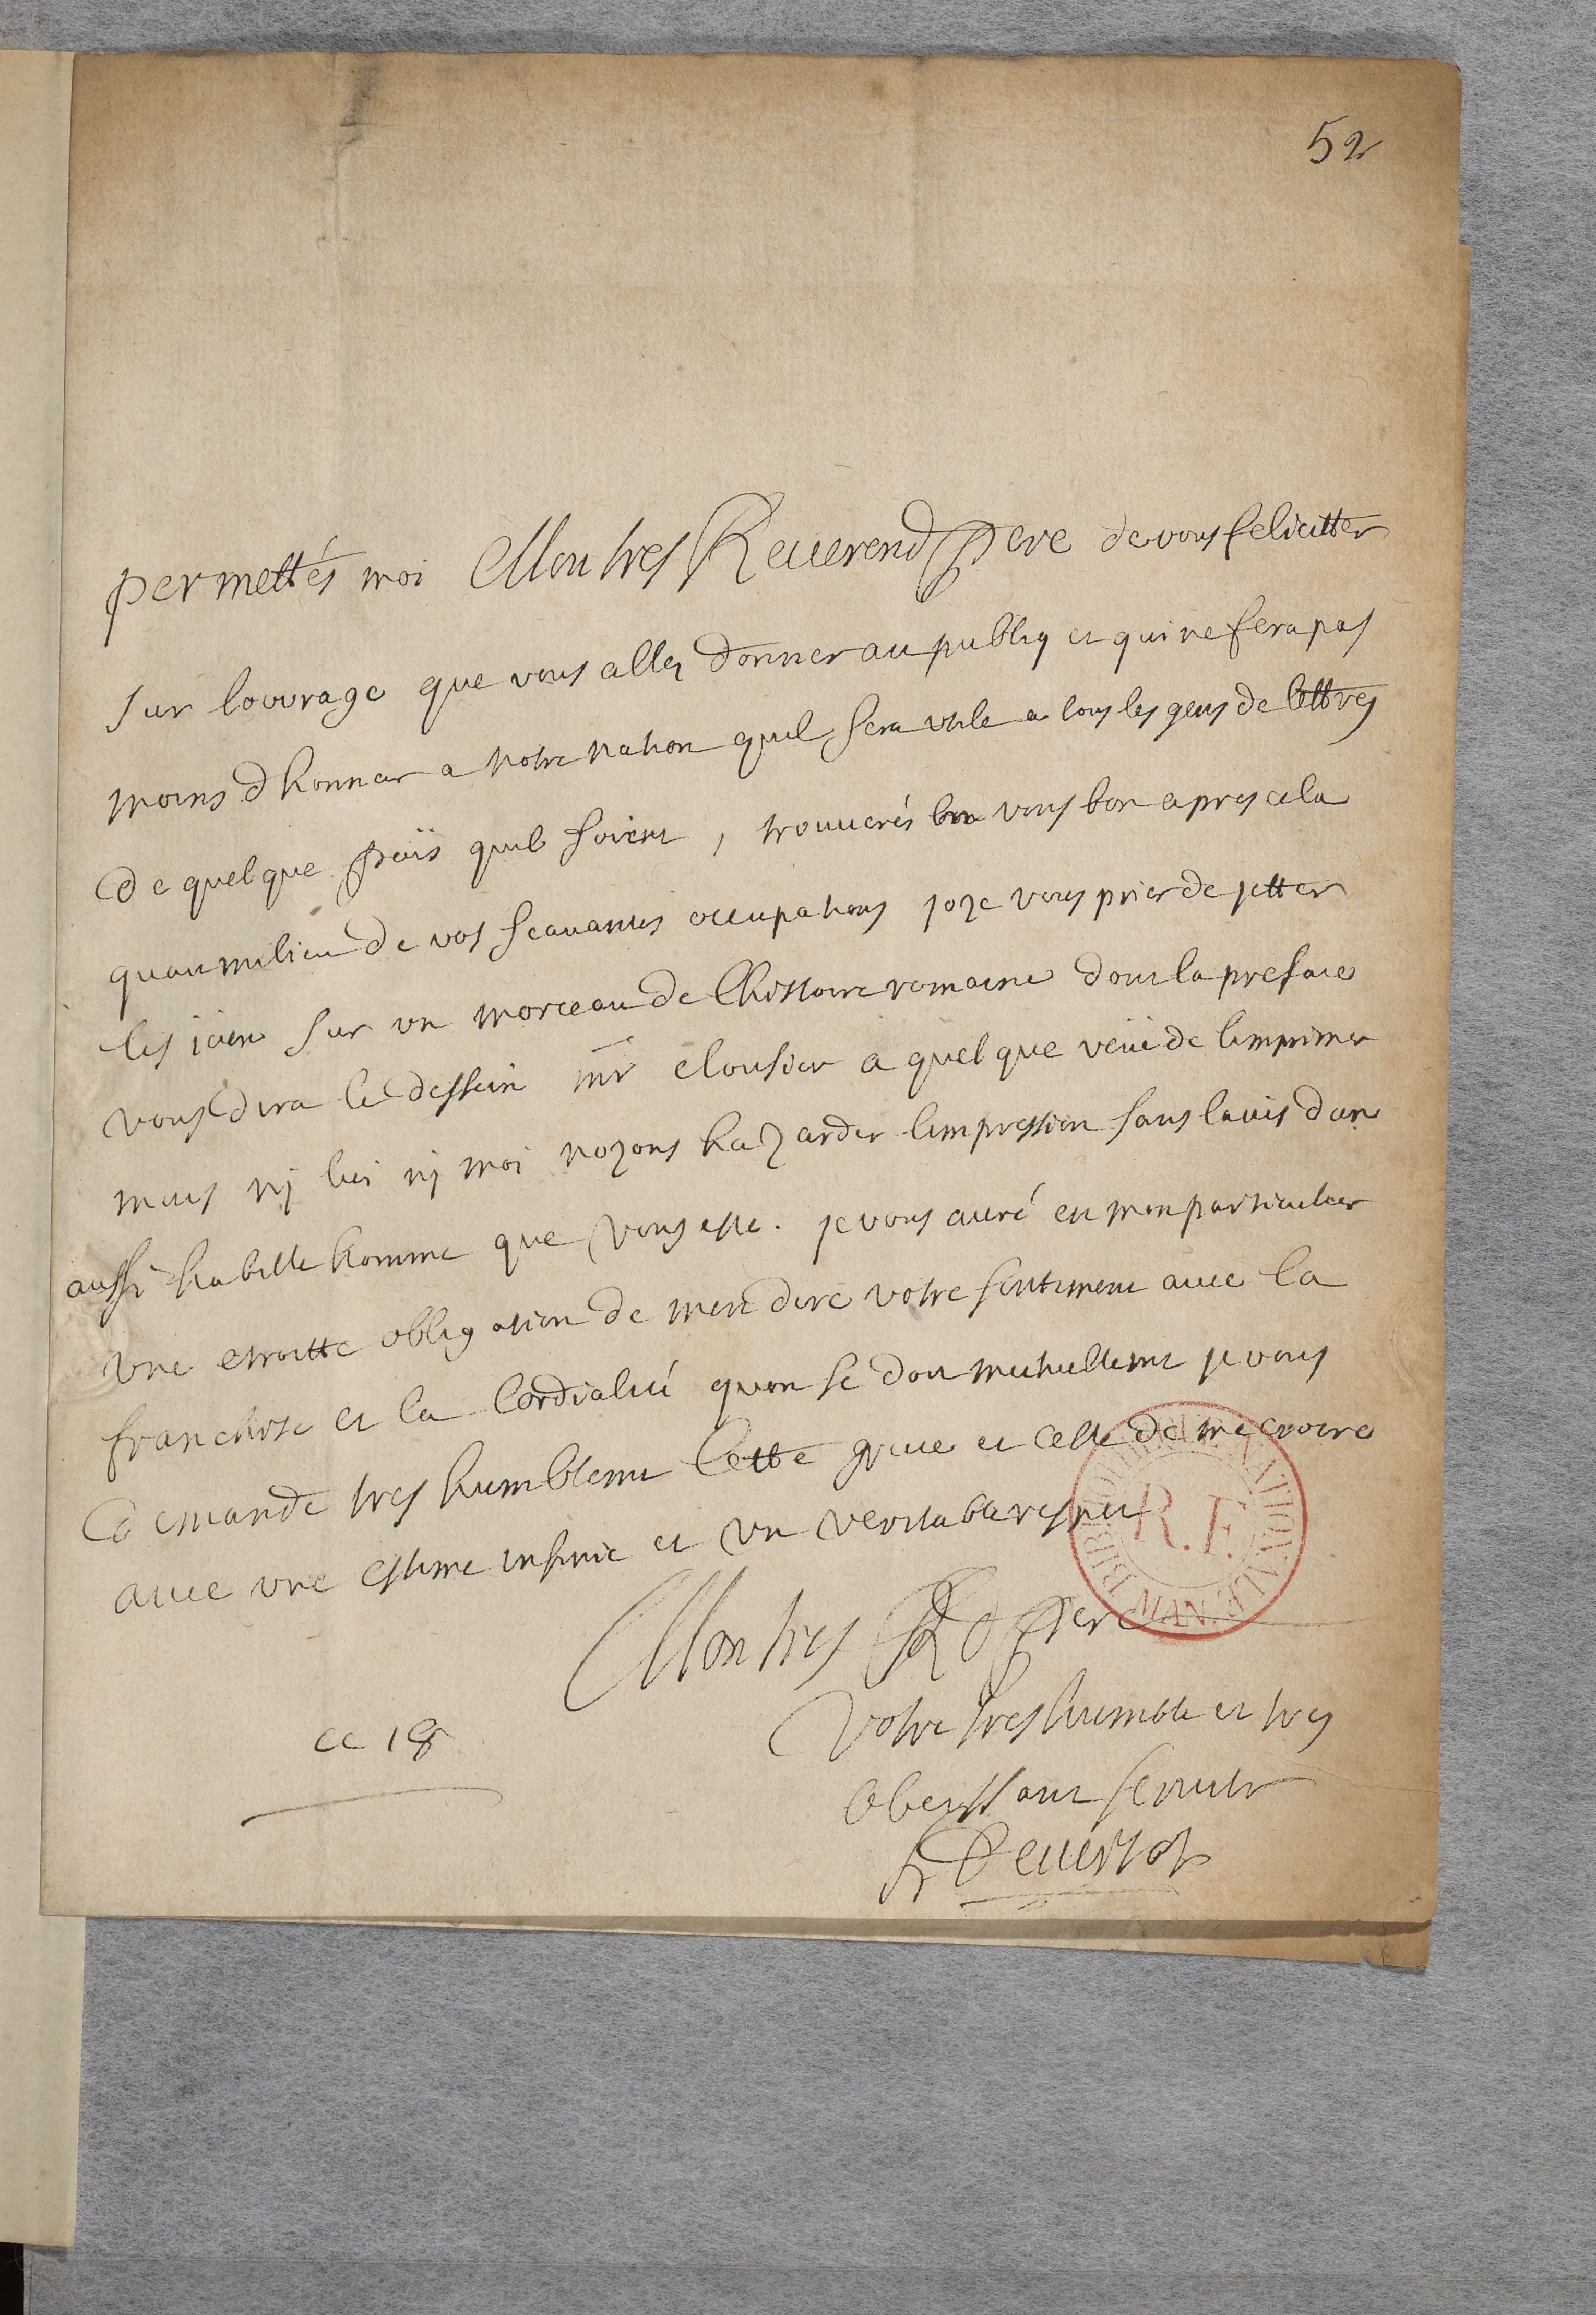 52
permettés moi Mon tres Reuerend Pere de vous felicitter
sur louurage que vous allez donner au publiq et qui ne fera pas
moins dhonneur a notre nation quil sera utile a tous les gens de lettres
de quelque païs quils soient, trouuerés vous bon apres cela
quau milieu de vos scauantes occupations joze vous prier de jetter
les ieux sur un morceau de lhistoire romaine dont la preface
vous dira le dessein mr clousier a quelque veüe de limprimer
mais nj lui nj moi nozons hazarder limpression sans lauis dun
aussi habille homme que vous este. je vous auré en mon particulier
une etroitte obligation de men dire votre sentiment auec la
franchise et la cordialité quon se doit mutuellement je vous
demande tres humblement cette grace et celle de me croire
auec une estime infinie et un veritable respect
Mon tres R Pere
Votre tres humble et tres
obeissant seruiteur
fr De uertot
ce 18
BIBLIOTHEQUE NATIONALE MAN
R.F.